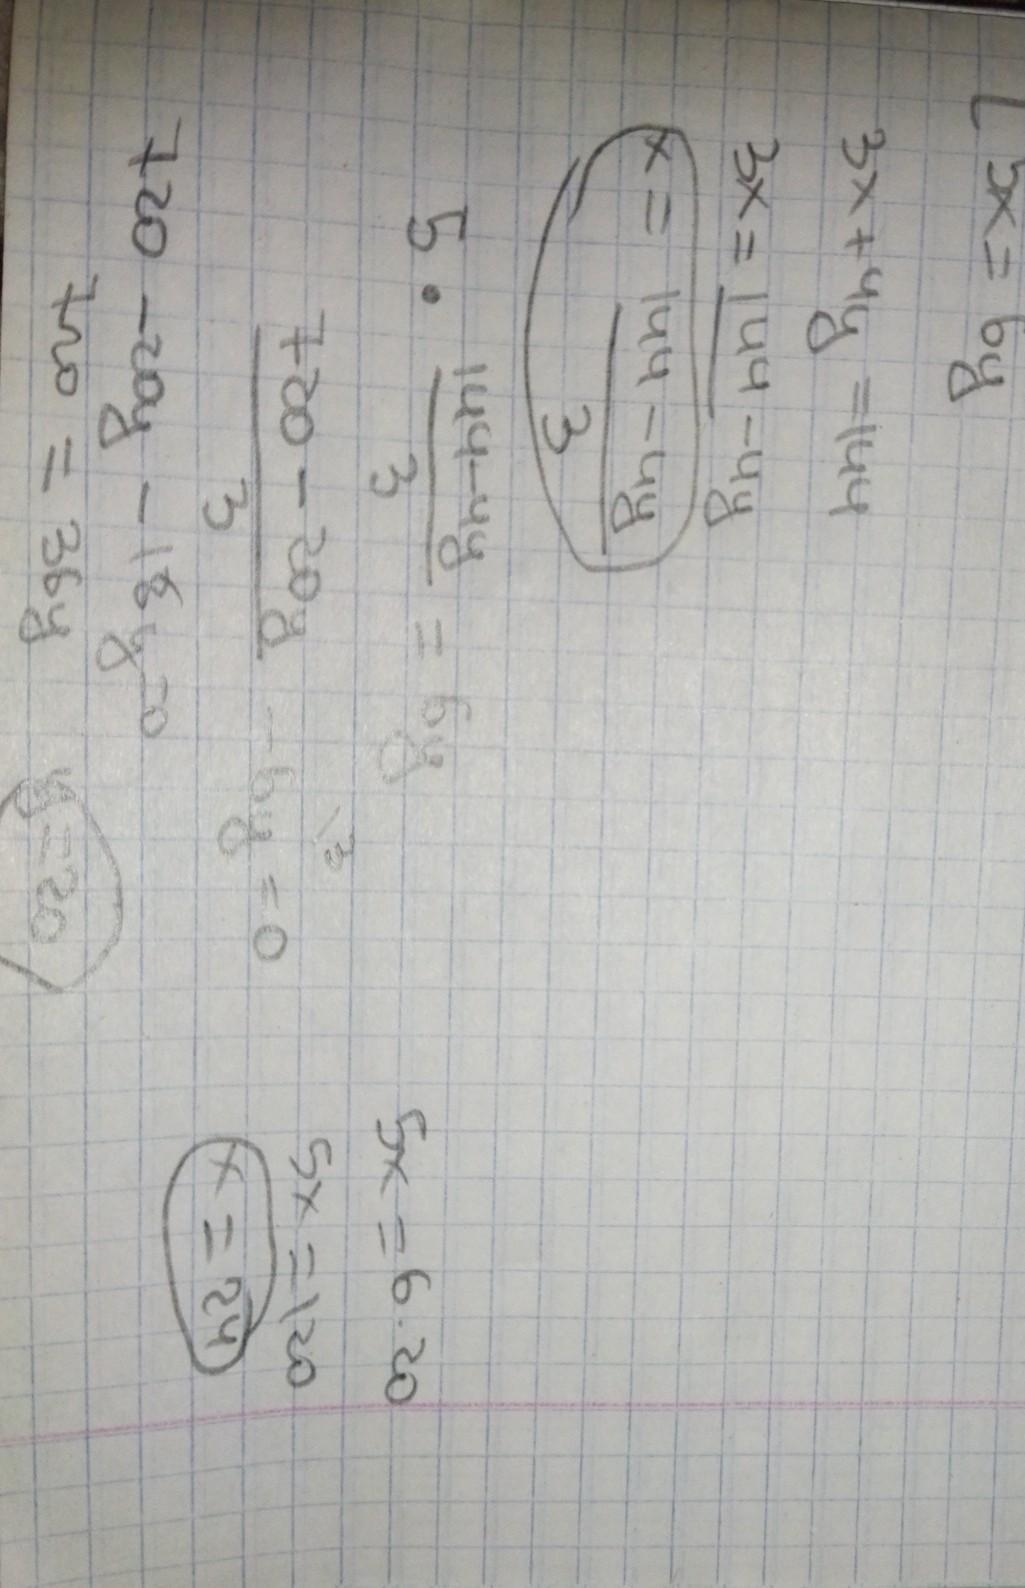 5x = 6y
3x + 4y = 144
3x = 144 - 4y
x = 144 - 4y
3
5 · 144 - 4y = 6y
3
720 - 20y - 6y \3 = 0
3
720 - 20y - 18y = 0
720 = 36y
y = 20
5x = 6 · 20
5x = 120
x = 24